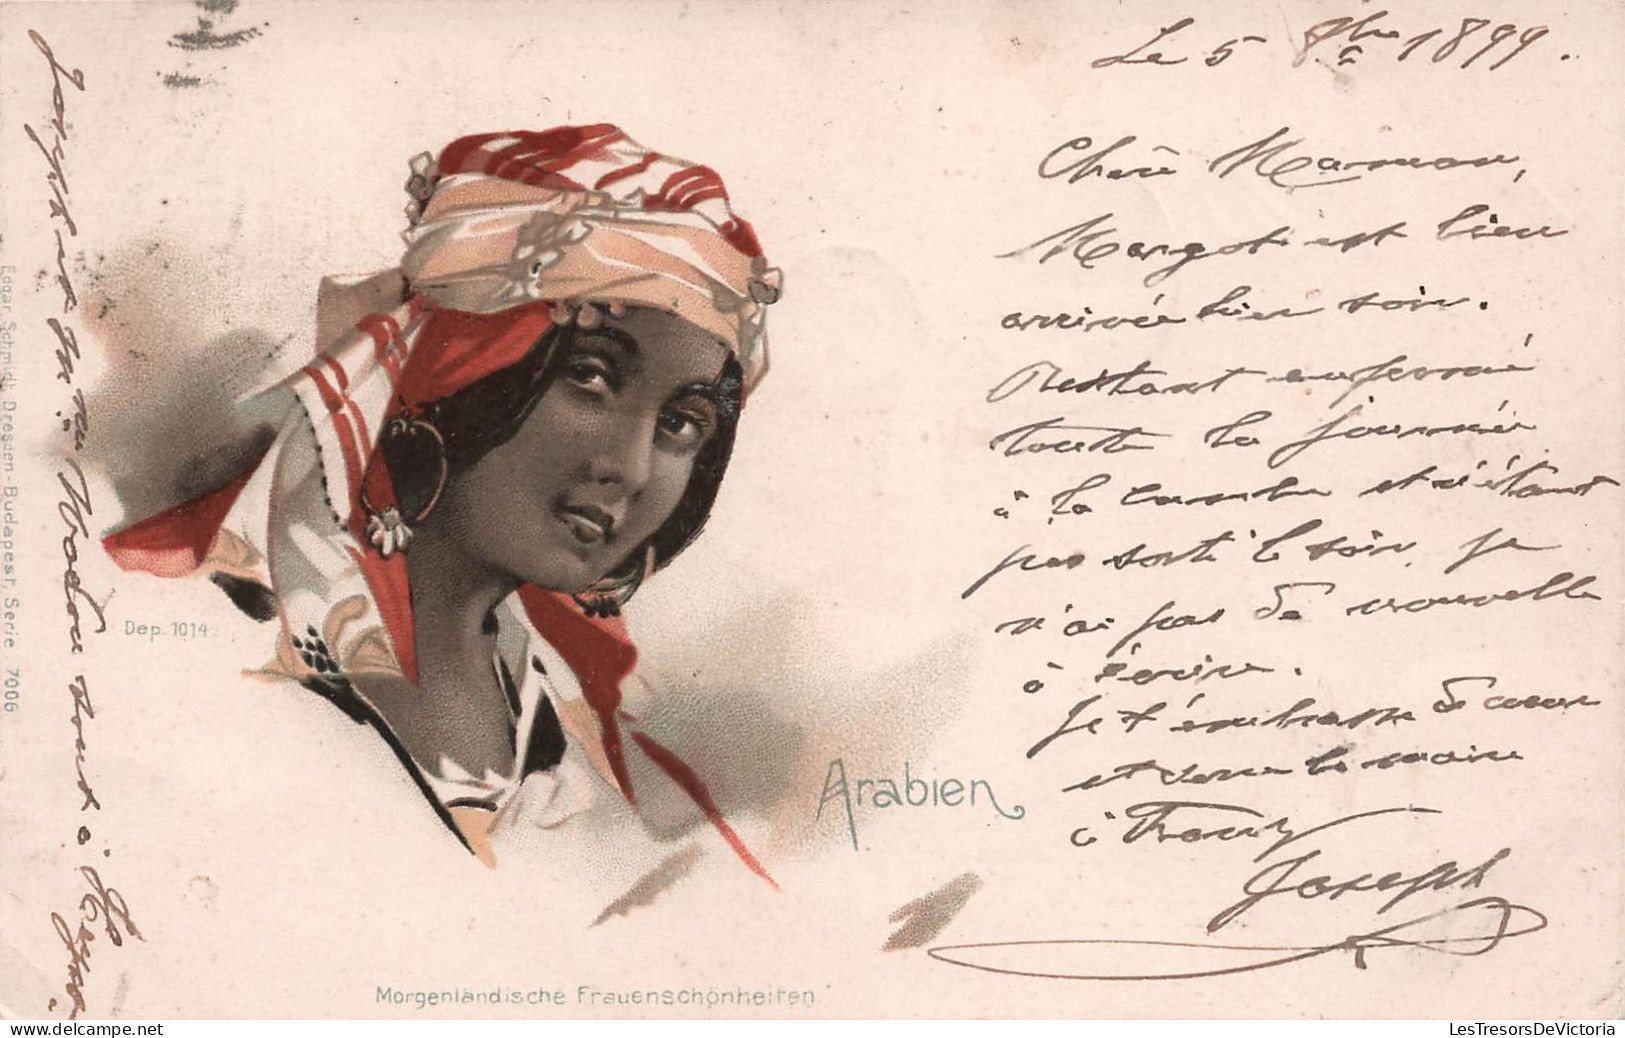 Le 5 8bre 1899.
Chère Maman,
Margot est bien
arrivée hier soir.
Restant enfermé
toute la journée
à la cambre et n'étant
pas sorti le soir, je
n'ai pas de nouvelle
à t'écrire.
Je t'embrasse de coeur
et serre la main
à Fanny
Joseph
Joseph et Mme Nadou sont à
Arabien
Dep. 1014.
Morgenländische Frauenschönheiten
Edgar Schmidt, Dresden-Budapest, Serie 7006
LesTresorsDeVictoria